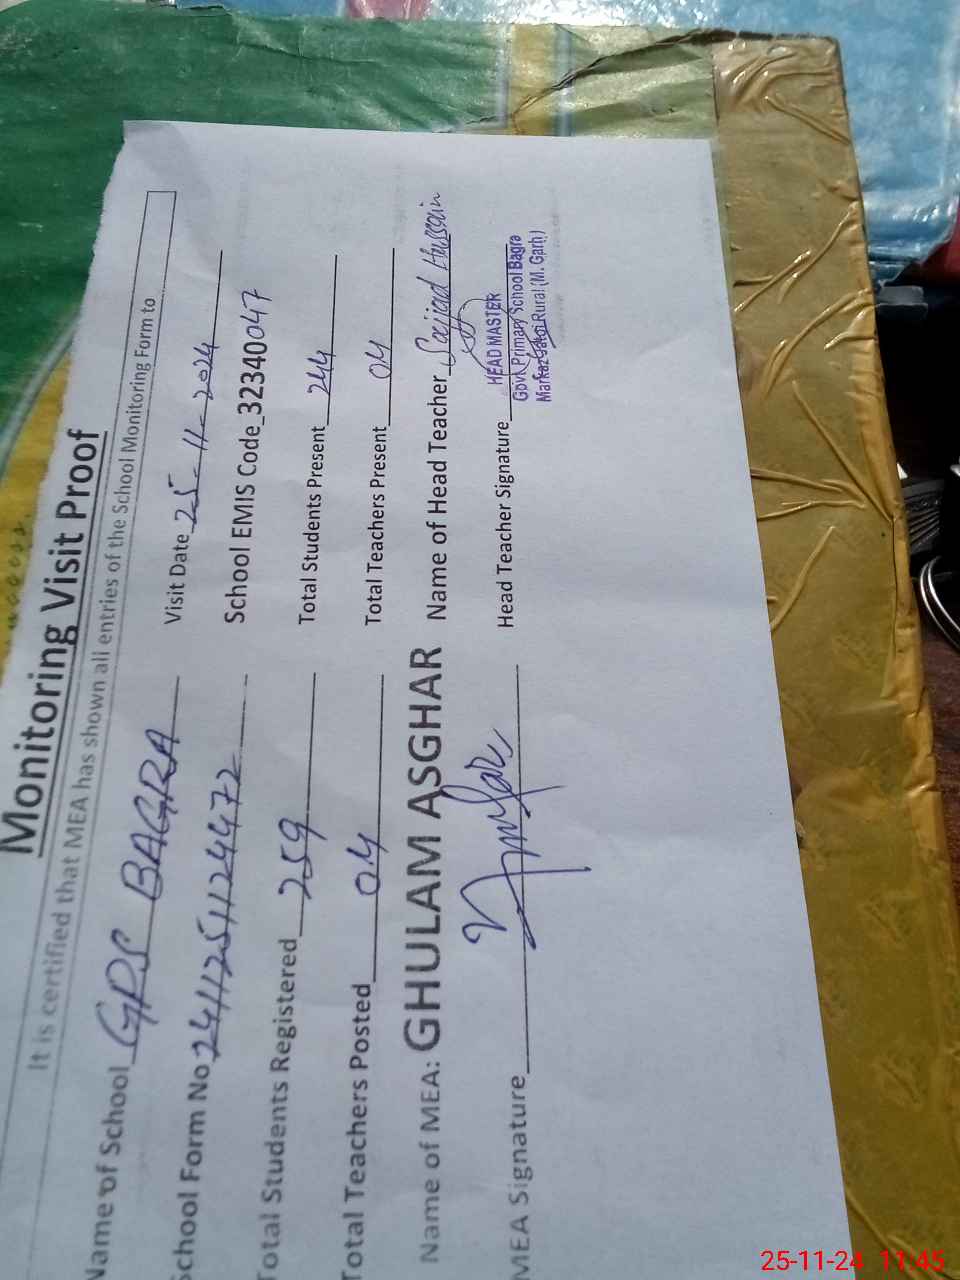 Monitoring Visit Proof
It is certified that MEA has shown all entries of the School Monitoring Form to
Name of School GPS BAGRA Visit Date 25-11-2024
School Form No 24112511124472 School EMIS Code_32340047
Total Students Registered 259 Total Students Present 244
Total Teachers Posted 04 Total Teachers Present 04
Name of MEA: GHULAM ASGHAR Name of Head Teacher Sajjad Hussain
MEA Signature Head Teacher Signature
HEAD MASTER
Govt. Primary School Bagra
Markaz Rural (M. Garh)
25-11-24 11:45